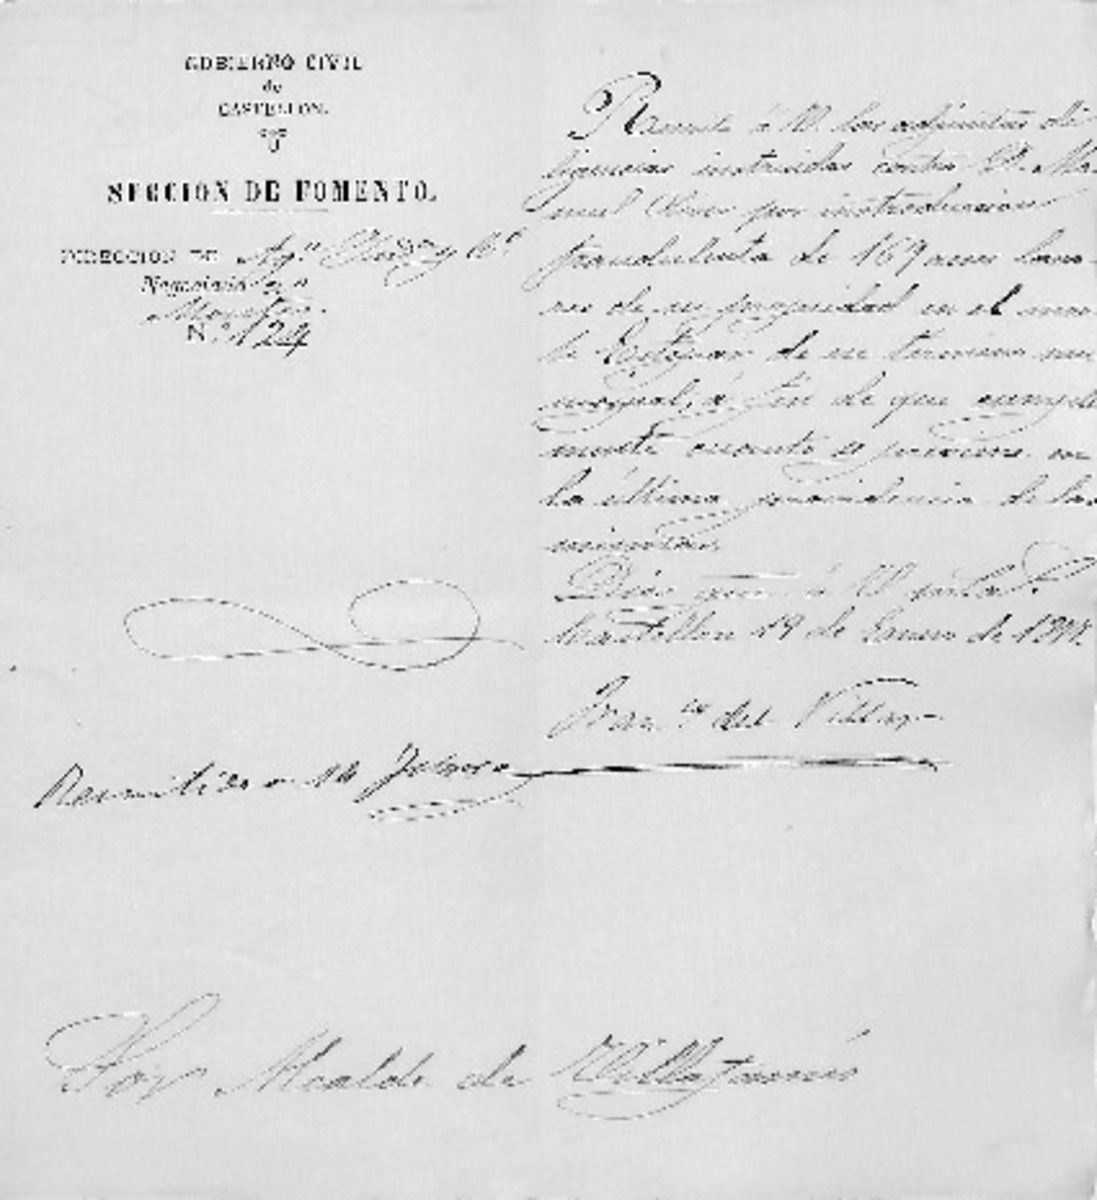 GOBIERNO CIVIL
de
CASTELLON.
SECCION DE FOMENTO.
DIRECCION DE Agra. Indra. y Co.
Negociado
Montes.
N.º 124
Remito á V. las adjuntas di
ligencias instruidas contra D. Ma
nuel por introduccion
fraudulenta de 169 reses lana
res de su propiedad en el mon
te de ese termino mu
nicipal, á fin de que cumpli
mente cuanto se previene en
la última providencia de las
mismas.
Dios gue. á V.
Castellon 19 de Enero de
Franco. del Villar
Remitido 14 Febrero
Sor Alcalde de Villafamés